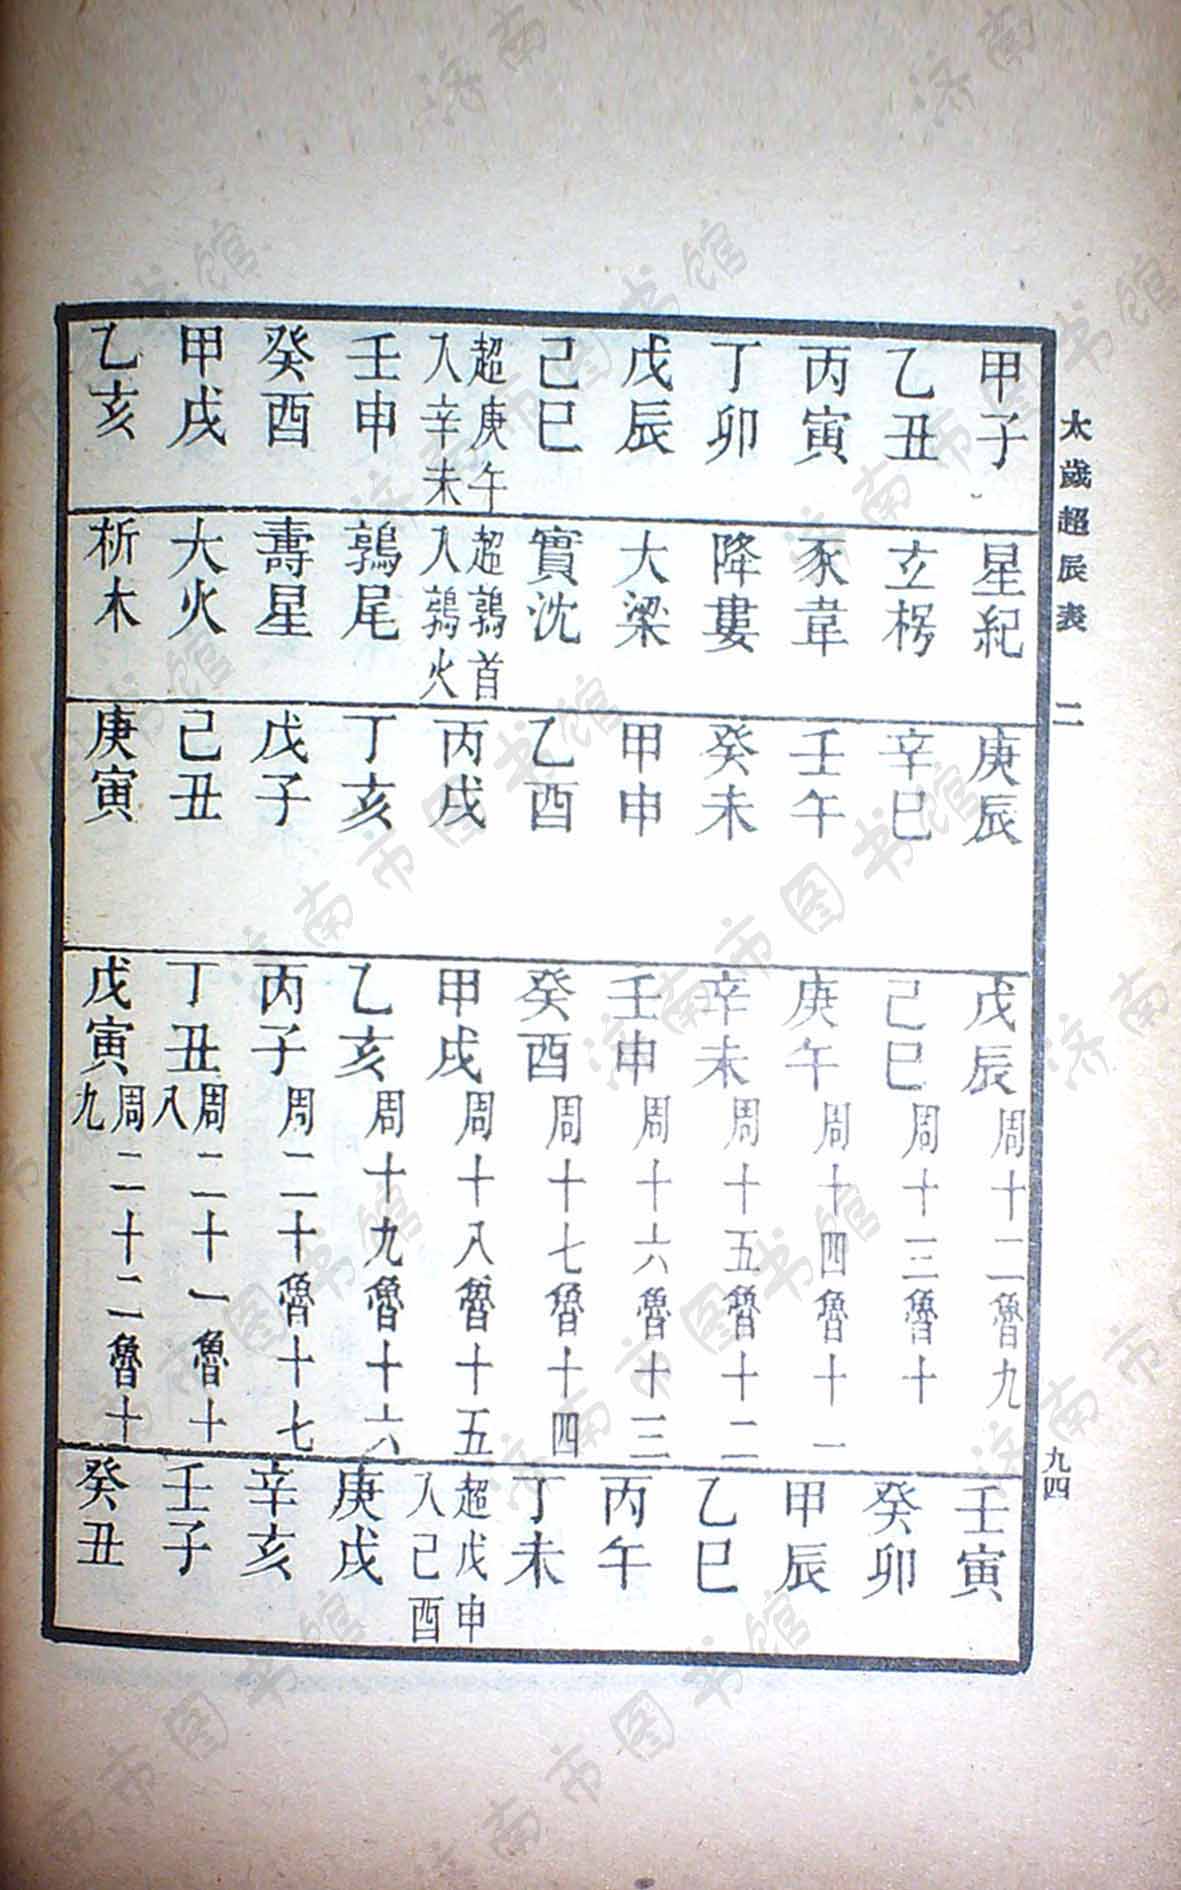 太歲超辰表 二 九四
甲子 星紀 庚辰 戊辰 周十二魯九 壬寅
乙丑 玄枵 辛巳 己巳 周十三魯十 癸卯
丙寅 豕韋 壬午 庚午 周十四魯十一 甲辰
丁卯 降婁 癸未 辛未 周十五魯十二 乙巳
戊辰 大梁 甲申 壬申 周十六魯十三 丙午
己巳 實沈 乙酉 癸酉 周十七魯十四 丁未
超庚午入辛未 超鶉首入鶉火 丙戌 甲戌 周十八魯十五 超戊申入己酉
壬申 鶉尾 丁亥 乙亥 周十九魯十六 庚戌
癸酉 壽星 戊子 丙子 周二十魯十七 辛亥
甲戌 大火 己丑 丁丑 周二十一魯十八 壬子
乙亥 析木 庚寅 戊寅 周二十二魯十九 癸丑
济南市图书馆